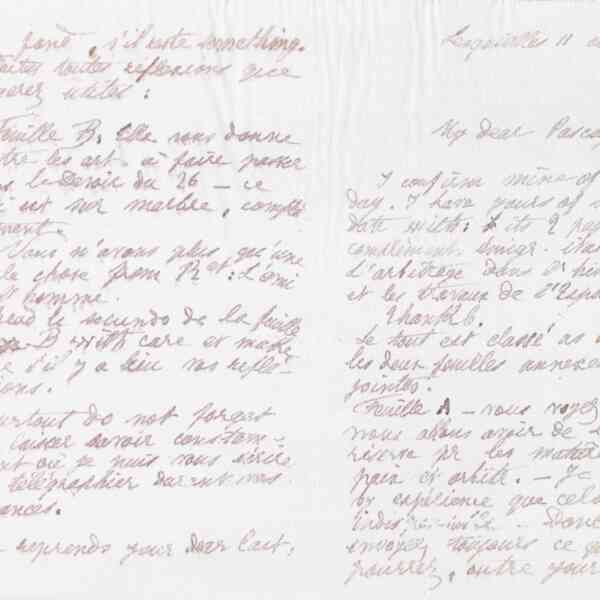 fond, s'il reste something.
faites toutes reflexions que
gerez utiles :
Feuille B. Elle vous donne
tre les art. à faire passer
le Devoir du 26 — ce
i est sur marbre, complè
ment.
Vous n'avons plus qu'une
le chose from Ret : L'ami
homme.
le secundo de la feuille
B with care et make
s'il y a lieu vos refle-
ions.
urtout do not forget
laisser savoir constam-
nt où je puis vous écrire
télégraphier durant vos
ances.
reprends your dear last,
Lespinilles 11
My dear Pasca
I confirm mine of
day. I have yours of
date with : its 2 pag
complément
d'arbitrage dans
et les travaux de
Thanks.
Le tout est classé as
les deux feuilles annexe
jointes.
Feuille A — vous voyez
nous allons avoir de
réserve pr les matiè
paix et arbitr. —
by expérience que cela
Donc
envoyez toujours ce qu
pourrez, outre your